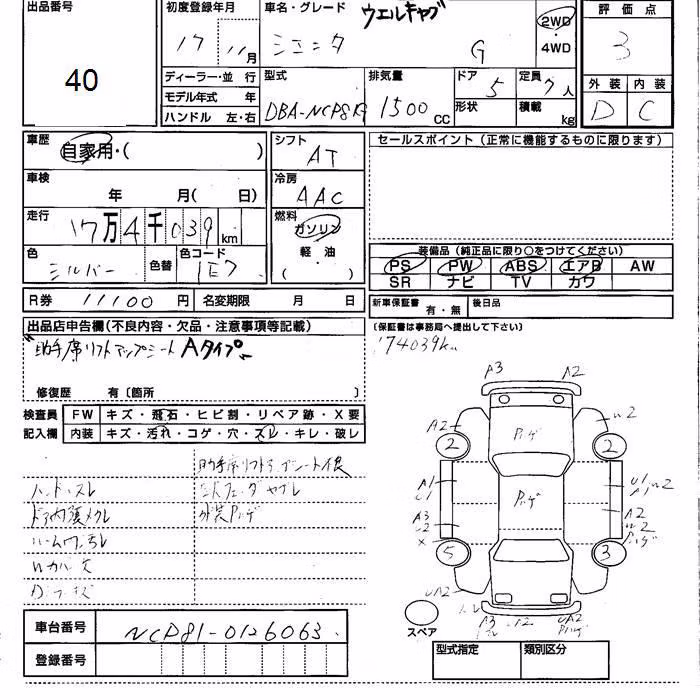 出品番号
40
初度登録年月
17 11月
車名・グレード ウェルキャブ
シエンタ G
2WD
・
4WD
評価点
3
外装 内装
D C
ディーラー・並行
モデル年式 年
ハンドル 左・右
型式
DBA-NCP81G
排気量
1500 CC
ドア 5
形状
定員 7人
積載 kg
車歴
自家用・( )
車検
年 月( 日)
走行
17万4千039km
色
シルバー
色替
色コード
1E7
シフト
AT
冷房
AAC
燃料
ガソリン
軽・油
( ・ )
セールスポイント(正常に機能するものに限ります)
装備品(純正品に限り○をつけてください)
PS PW ABS エアB AW
SR ナビ TV カワ
R券 11100円
名変期限 月 日
新車保証書 有・無
後日品
(保証書は事務局へ提出して下さい)
出品店申告欄(不良内容・欠品・注意事項等記載)
助手席リフトアップシート Aタイプ
修復歴 有〔箇所 〕
'74039km
検査員 FW キズ・飛石・ヒビ割・リペア跡・X要
記入欄 内装 キズ・汚れ・コゲ・穴・スレ・キレ・破レ
助手席リフトアップシート
ハンドルスレ
外装Pハゲ
A3 A2
A2 U2
2 2
Pハゲ
A1 U1
U1 A1 U2
Pハゲ
A3
X
A2 U2 Pハゲ
5 3
UA2 A2
A3 U2
Pハゲ
スペア
車台番号 NCP81-0126063
登録番号
型式指定 類別区分